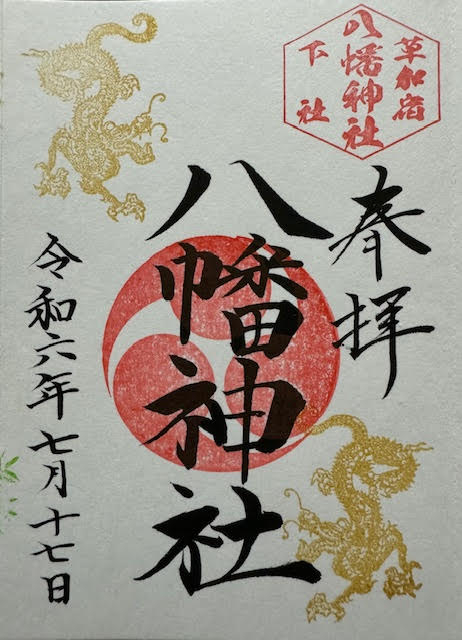 草加宿
八幡神社
下社
奉拝
八幡神社
令和六年七月十七日